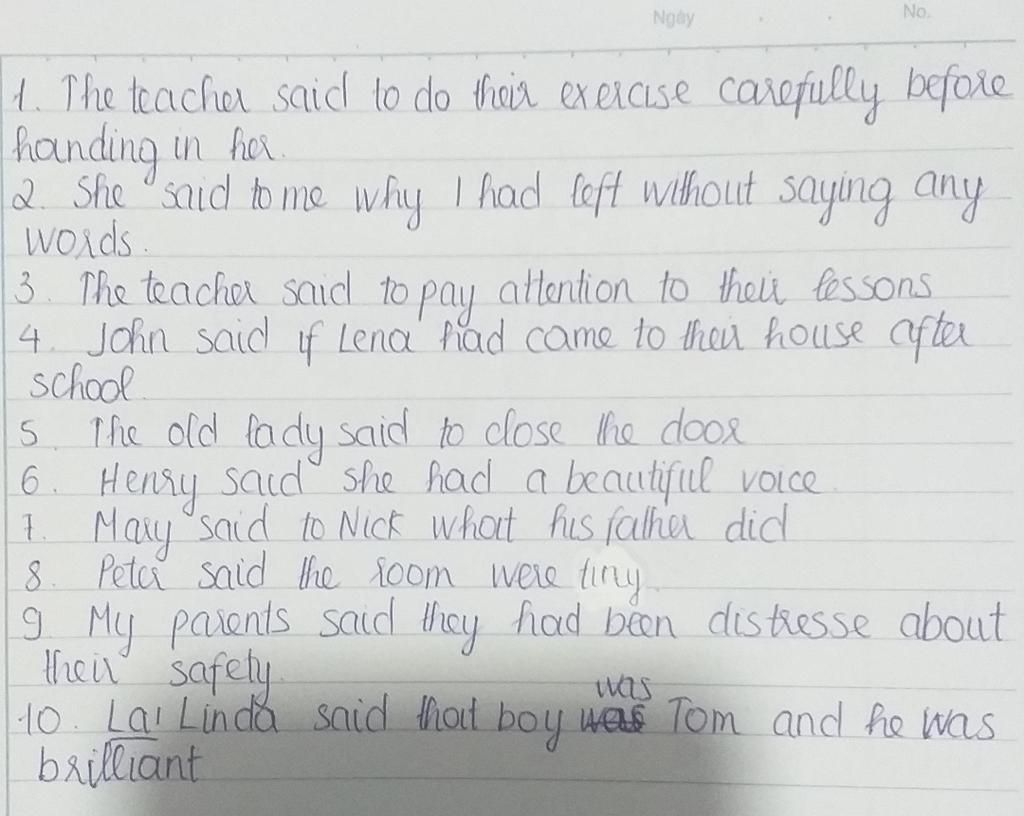 Ngày . . No.
1. The teacher said to do their exercise carefully before
handing in her.
2. She said to me why I had left without saying any
words.
3. The teacher said to pay attention to their lessons
4. John said if Lena had came to their house after
school.
5. The old lady said to close the door
6. Henry said she had a beautiful voice.
7. Mary said to Nick what his father did
8. Peter said the room were tiny.
9. My parents said they had been distresse about
their safety.
10. Lai Linda said that boy was Tom and he was
brilliant